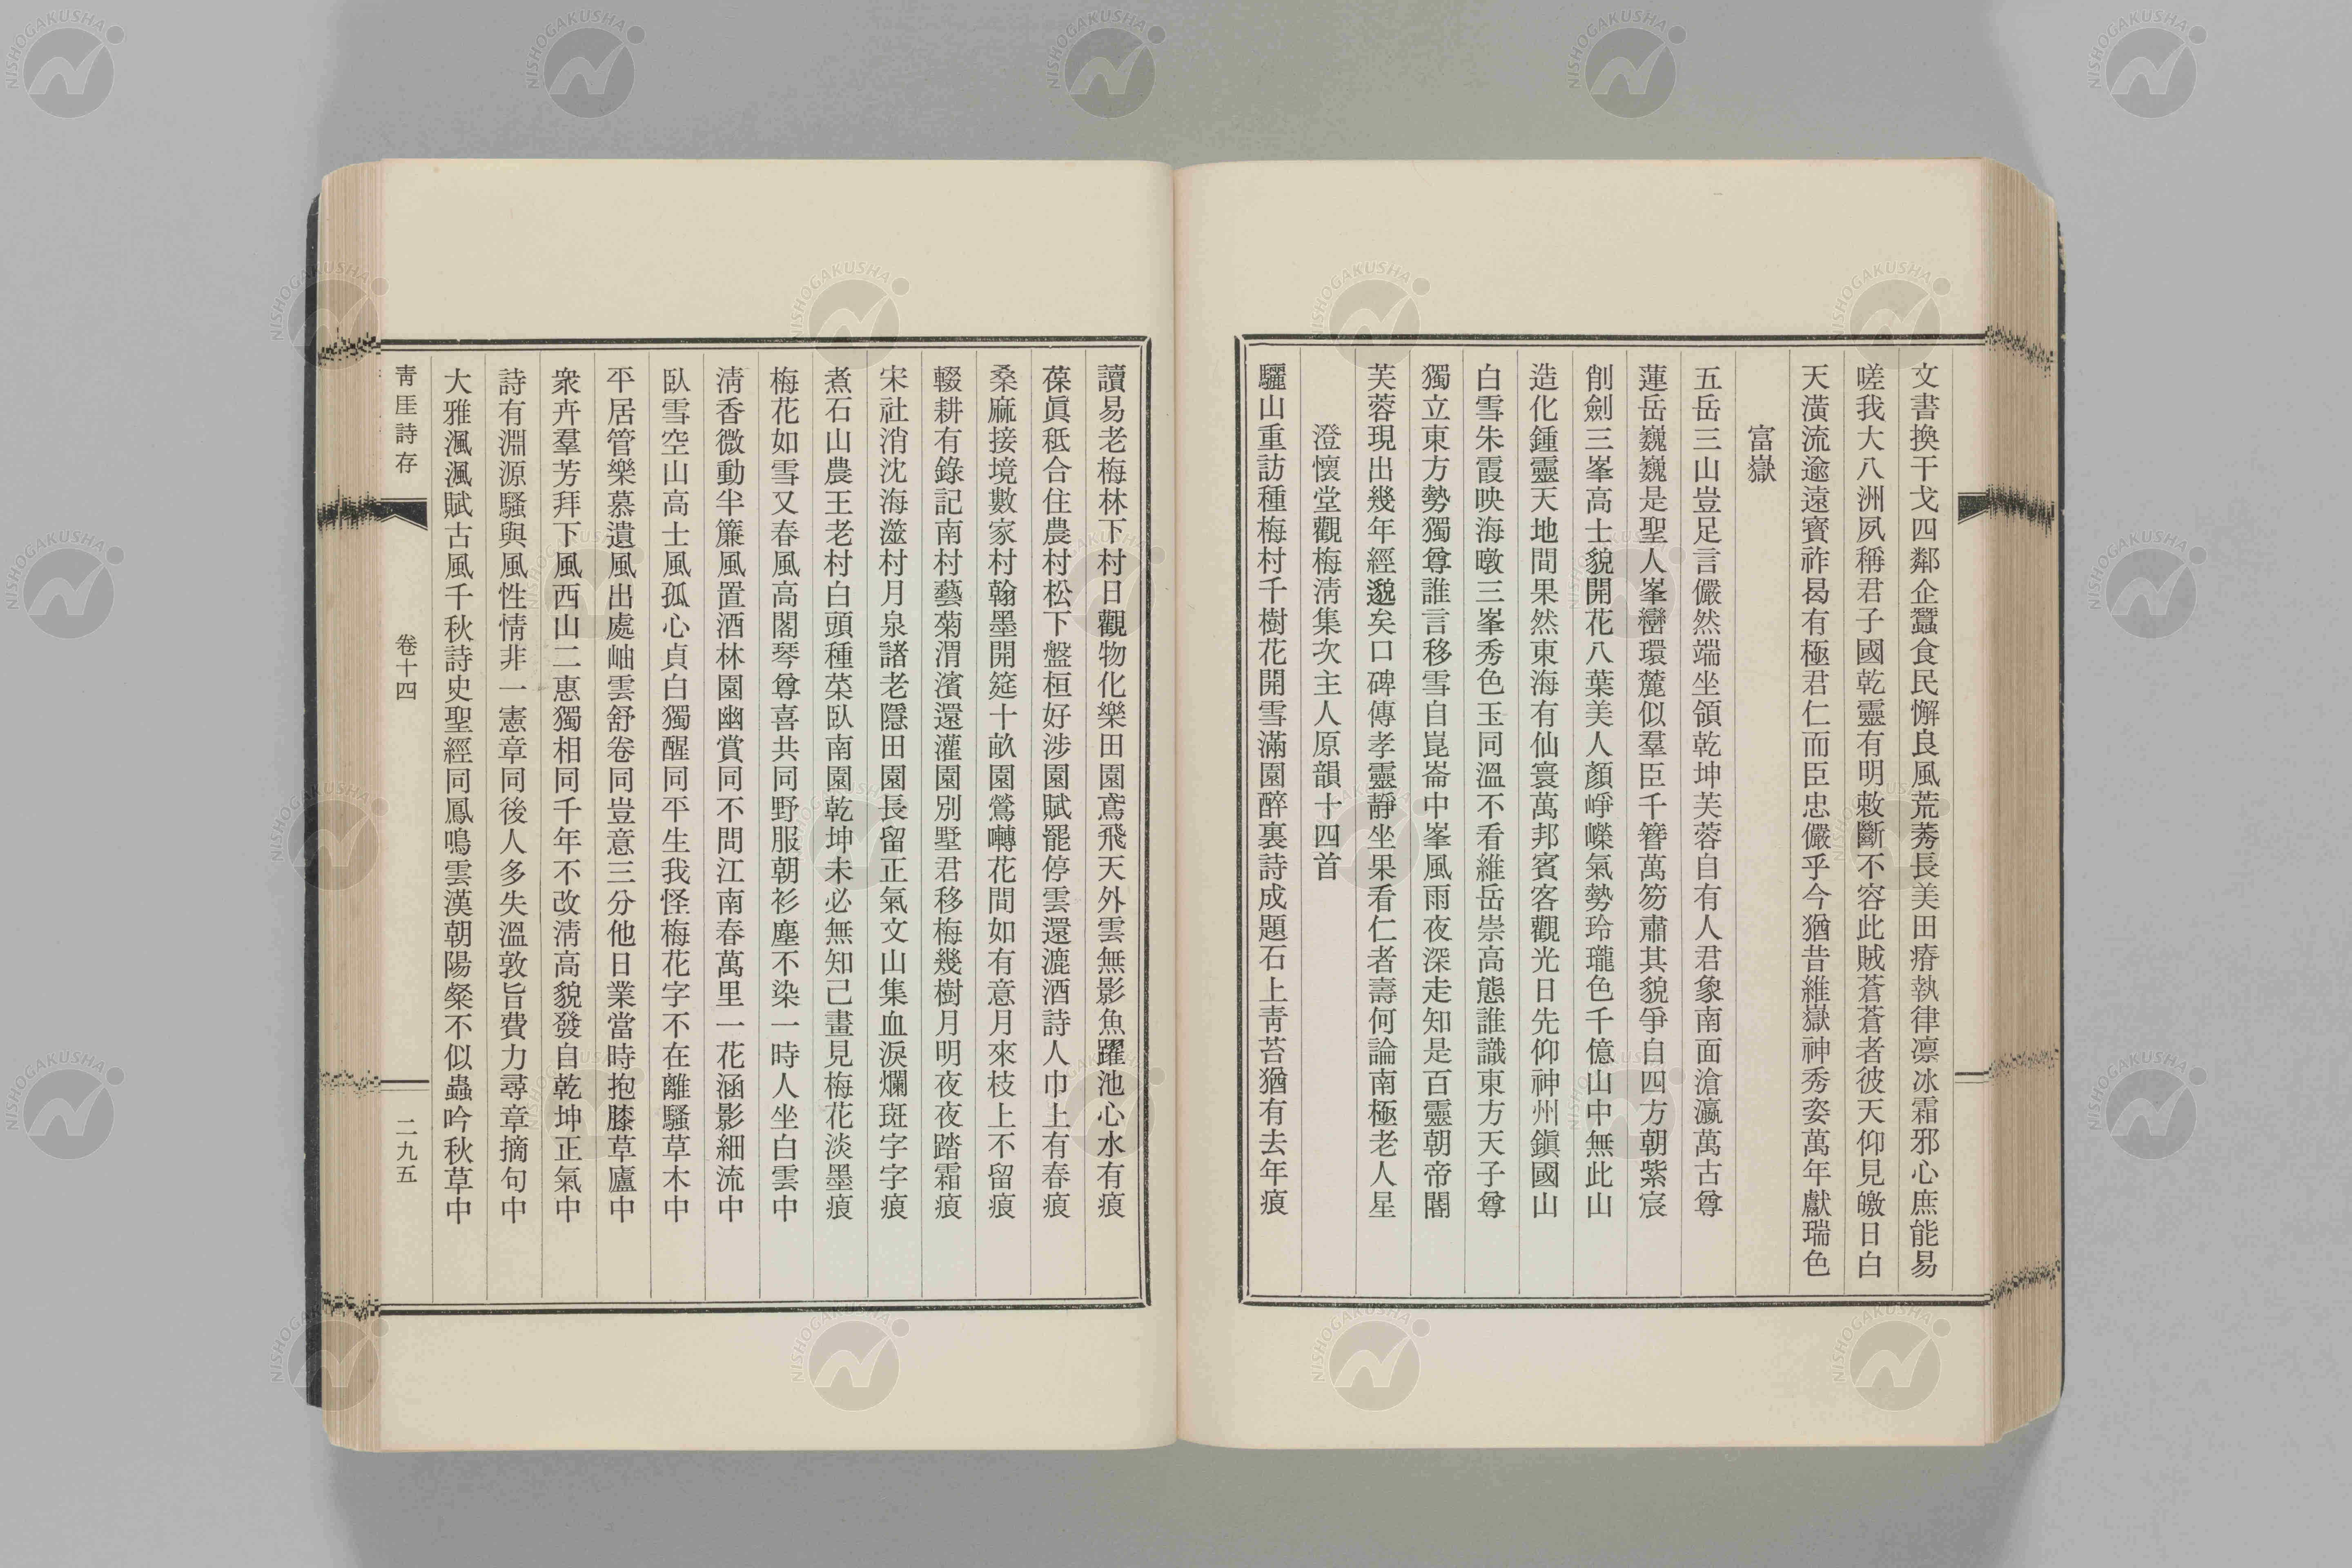 文書換干戈四鄰企蠶食民懈良風荒莠長美田瘠執律凛冰霜邪心庶能易
嗟我大八洲夙稱君子國乾靈有明敕斷不容此賊蒼蒼者彼天仰見皦日白
天潢流逾遠寶祚曷有極君仁而臣忠儼乎今猶昔維嶽神秀姿萬年獻瑞色
富嶽
五岳三山豈足言儼然端坐領乾坤芙蓉自有人君象南面滄瀛萬古尊
蓮岳巍巍是聖人峯巒環麓似羣臣千簪萬笏肅其貌爭自四方朝紫宸
削劍三峯高士貌開花八葉美人顏崢嶸氣勢玲瓏色千億山中無此山
造化鍾靈天地間果然東海有仙寰萬邦賓客觀光日先仰神州鎭國山
白雪朱霞映海暾三峯秀色玉同溫不看維岳崇高態誰識東方天子尊
獨立東方勢獨尊誰言移雪自崑崙中峯風雨夜深走知是百靈朝帝閽
芙蓉現出幾年經邈矣口碑傳孝靈靜坐果看仁者壽何論南極老人星
澄懷堂觀梅淸集次主人原韻十四首
驪山重訪種梅村千樹花開雪滿園醉裏詩成題石上靑苔猶有去年痕
讀易老梅林下村日觀物化樂田園鳶飛天外雲無影魚躍池心水有痕
葆眞秪合住農村松下盤桓好涉園賦罷停雲還漉酒詩人巾上有春痕
桑麻接境數家村翰墨開筵十畝園鶯囀花間如有意月來枝上不留痕
輟耕有錄記南村藝菊渭濱還灌園別墅君移梅幾樹月明夜夜踏霜痕
宋社消沈海澨村月泉諸老隱田園長留正氣文山集血淚斕斑字字痕
煮石山農王老村白頭種菜臥南園乾坤未必無知己畫見梅花淡墨痕
梅花如雪又春風高閣琴尊喜共同野服朝衫塵不染一時人坐白雲中
淸香微動半簾風置酒林園幽賞同不問江南春萬里一花涵影細流中
臥雪空山高士風孤心貞白獨醒同平生我怪梅花字不在離騷草木中
平居管樂慕遺風出處岫雲舒卷同豈意三分他日業當時抱膝草廬中
衆卉羣芳拜下風西山二惠獨相同千年不改淸高貌發自乾坤正氣中
詩有淵源騷與風性情非一憲章同後人多失溫敦旨費力尋章摘句中
大雅渢渢賦古風千秋詩史聖經同鳳鳴雲漢朝陽粲不似蟲吟秋草中
靑厓詩存
卷十四
二九五